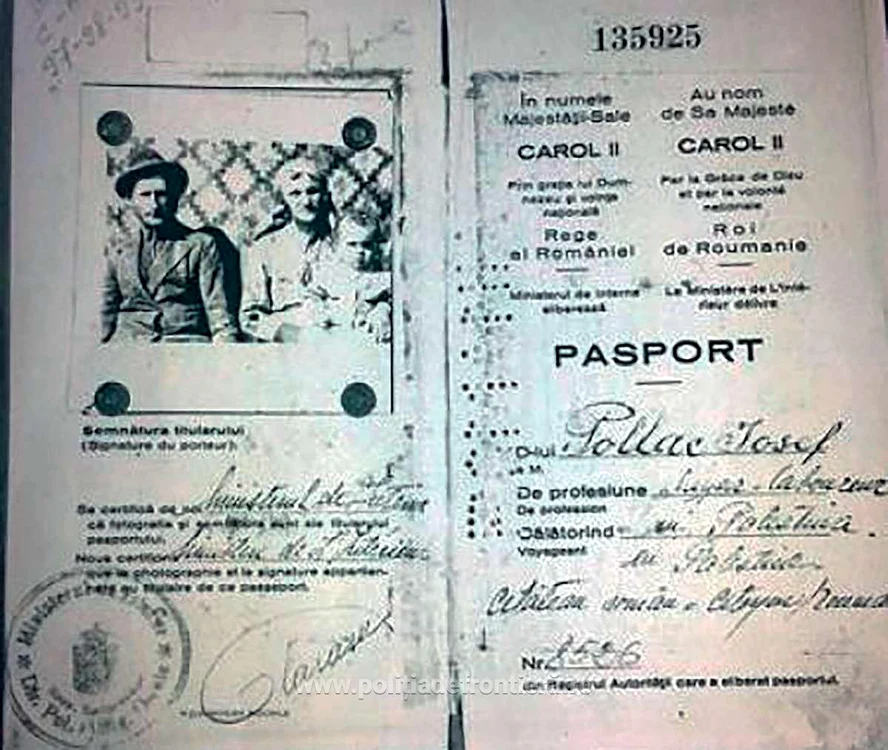 97-98-99
135925
În numele
Majestății-Sale
CAROL II
Prin grația lui Dum-
nezeu și voința
națională
Rege
al României
Ministerul de Interne
eliberează
Au nom
de Sa Majesté
CAROL II
Par la Grâce de Dieu
et par la volonté
nationale
Roi
de Roumanie
Le Ministère de L'Inté-
rieur délivre
PASPORT
D-lui Pollac Iosef
De profesiune
De profession
Călătorind în Palestina
Voyageant
en Palestine
cetățean român - citoyen
Nr. 8506
din Registrul Autorității care a eliberat pasportul.
Semnătura titularului
(Signature du porteur):
Se certifică de noi Ministerul de Interne
că fotografia și semnătura sunt ale titularului
pasportului.
Nous certifions
que la photographie et la signature appartien-
nent au titulaire de ce passeport.
www.politiadefrontiera.ro